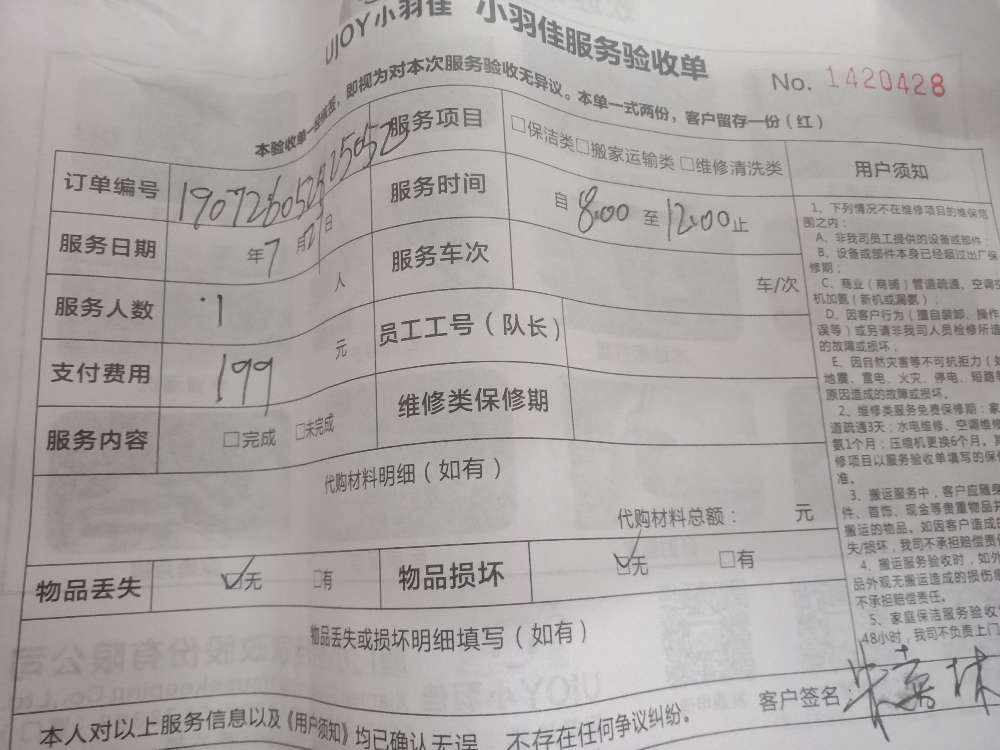 UJOY小羽佳 小羽佳服务验收单
No. 1420428
即视为对本次服务验收无异议。本单一式两份，客户留存一份（红）
订单编号
服务项目 □保洁类□搬家运输类 □维修清洗类
服务日期 年7月 日
服务时间 自 8:00 至 12:00 止
服务人数 1 人
服务车次 车/次
支付费用 199 元
员工工号（队长）
服务内容 □完成 □未完成
维修类保修期
代购材料明细（如有）
代购材料总额： 元
物品丢失 ☑无 □有
物品损坏 ☑无 □有
物品丢失或损坏明细填写（如有）
客户签名：
本人对以上服务信息以及《用户须知》均已确认无误，不存在任何争议纠纷。
用户须知
1、下列情况不在维修项目的维保范
围之内：
A、非我司员工提供的设备或部件；
B、设备或部件本身已经超过出厂保
修期；
C、商业（商铺）管道疏通、空调空
机加氨（新机或漏氨）；
D、因客户行为（擅自装卸、操作
误等）或另请非我司人员检修所造
的故障或损坏；
E、因自然灾害等不可抗拒力（如
地震、雷电、火灾、停电、短路等
原因造成的故障或损坏。
2、维修类服务免费保修期：家
道疏通3天；水电维修、空调维修
氨1个月；压缩机更换6个月。其
修项目以服务验收单填写的保修
准。
3、搬运服务中，客户应随身
件、首饰、现金等贵重物品并
搬运的物品。如因客户造成的
失/损坏，我司不承担赔偿责任
4、搬运服务验收时，如外
品外观无搬运造成的损伤
不承担赔偿责任。
5、家庭保洁服务验收
48小时，我司不负责上门